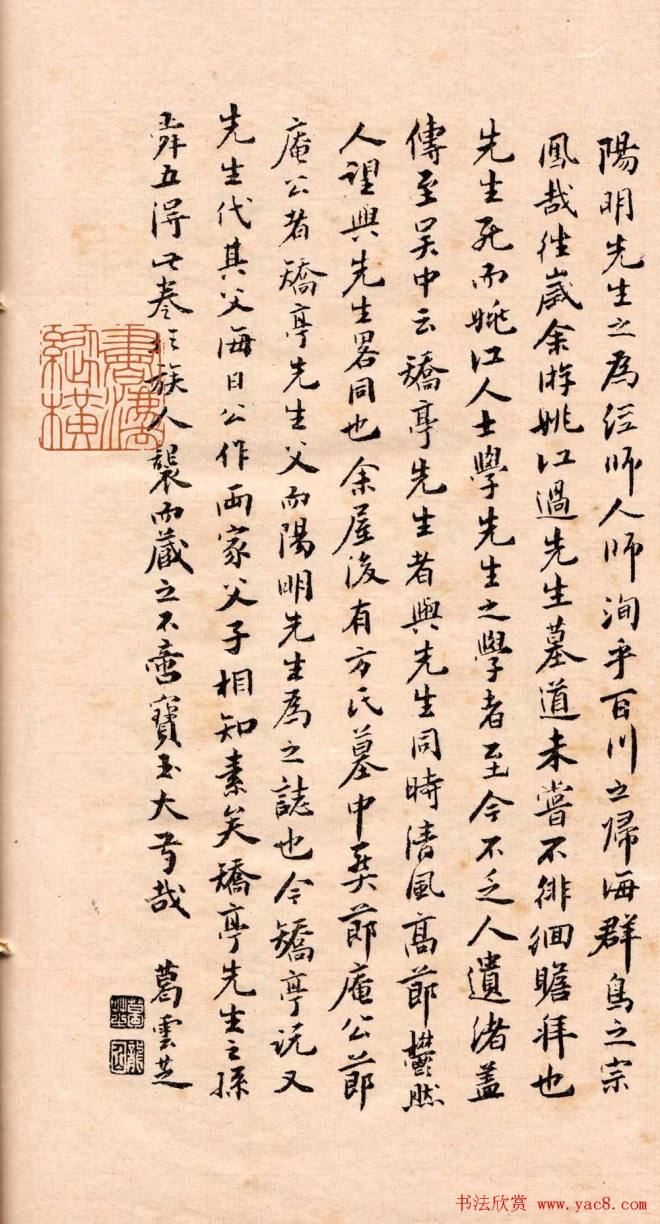 陽明先生之為經師人師洵乎百川之歸海群鳥之宗
鳳哉往歲余游姚江過先生墓道未嘗不徘徊瞻拜也
先生死而姚江人士學先生之學者至今不乏人遺渚蓋
傳至吴中云矯亭先生者與先生同時清風高節欝然
人望與先生畧同也余屋後有方氏墓中葬節庵公節
庵公者矯亭先生父而陽明先生為之誌也今矯亭說又
先生代其父海日公作兩家父子相知素矣矯亭先生之孫
舜五得此卷於族人襲而藏之不啻寶玉大弓哉
葛雲芝
書法欣赏 www.yac8.com